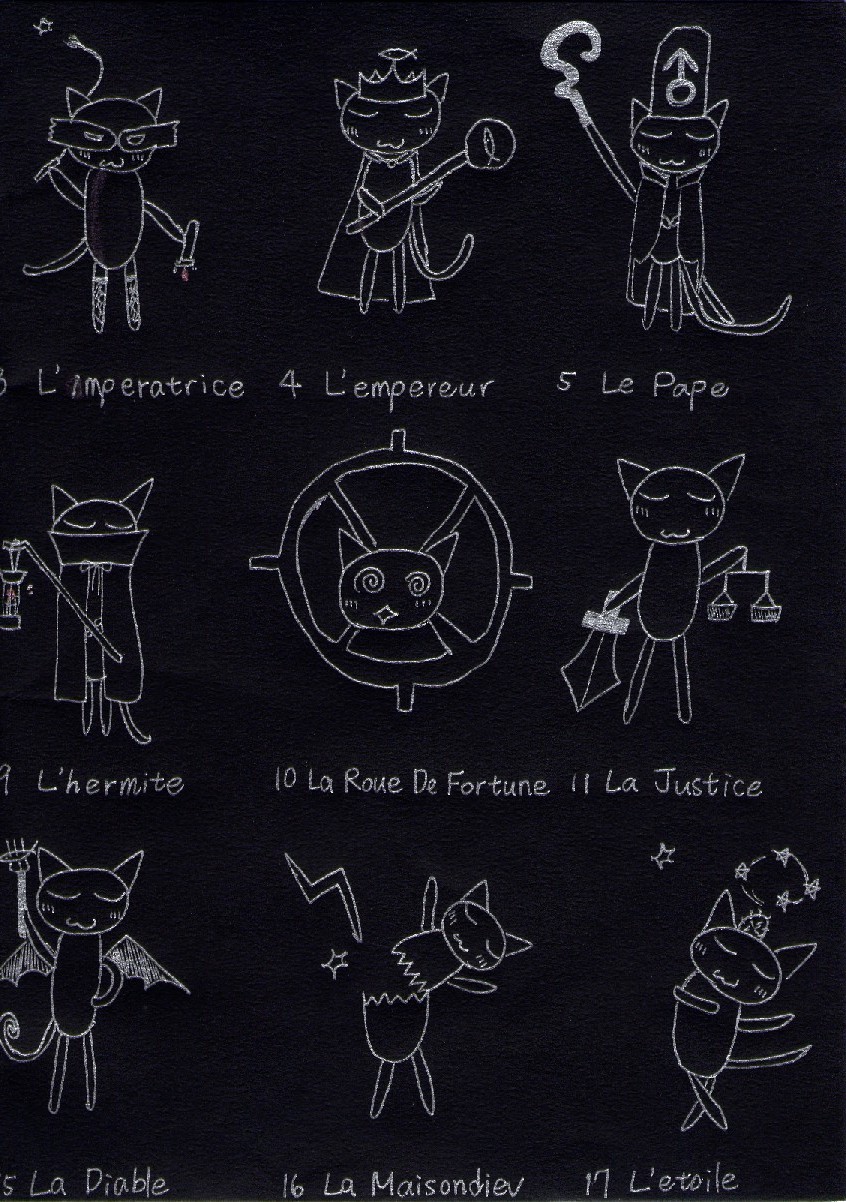 3 L'imperatrice 4 L'empereur 5 Le Pape
9 L'hermite 10 La Roue De Fortune 11 La Justice
15 La Diable 16 La Maisondiev 17 L'etoile